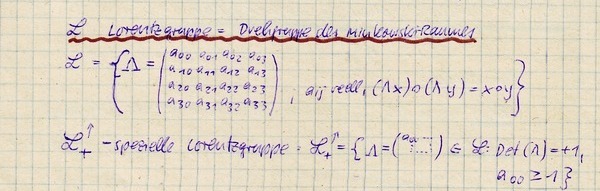 𝓛 Lorentzgruppe = Drehgruppe des Minkowski-Raumes
𝓛 = { Λ = ( a00 a01 a02 a03
a10 a11 a12 a13
a20 a21 a22 a23
a30 a31 a32 a33 ) , aij reell, (Λx)∘(Λy) = x∘y }
𝓛₊↑ - spezielle Lorentzgruppe = 𝓛₊↑ = { Λ = ( a00 ... ) ∈ 𝓛: Det(Λ) = +1,
a00 ≥ 1 }